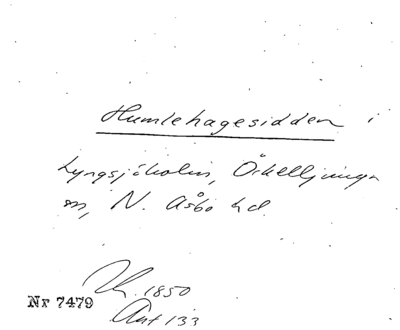 Humlehagesidden i
Lyngsjöholm, Örkelljunga
sn, N. Åsbo hd.
1850
Nr 7479
Ant 133